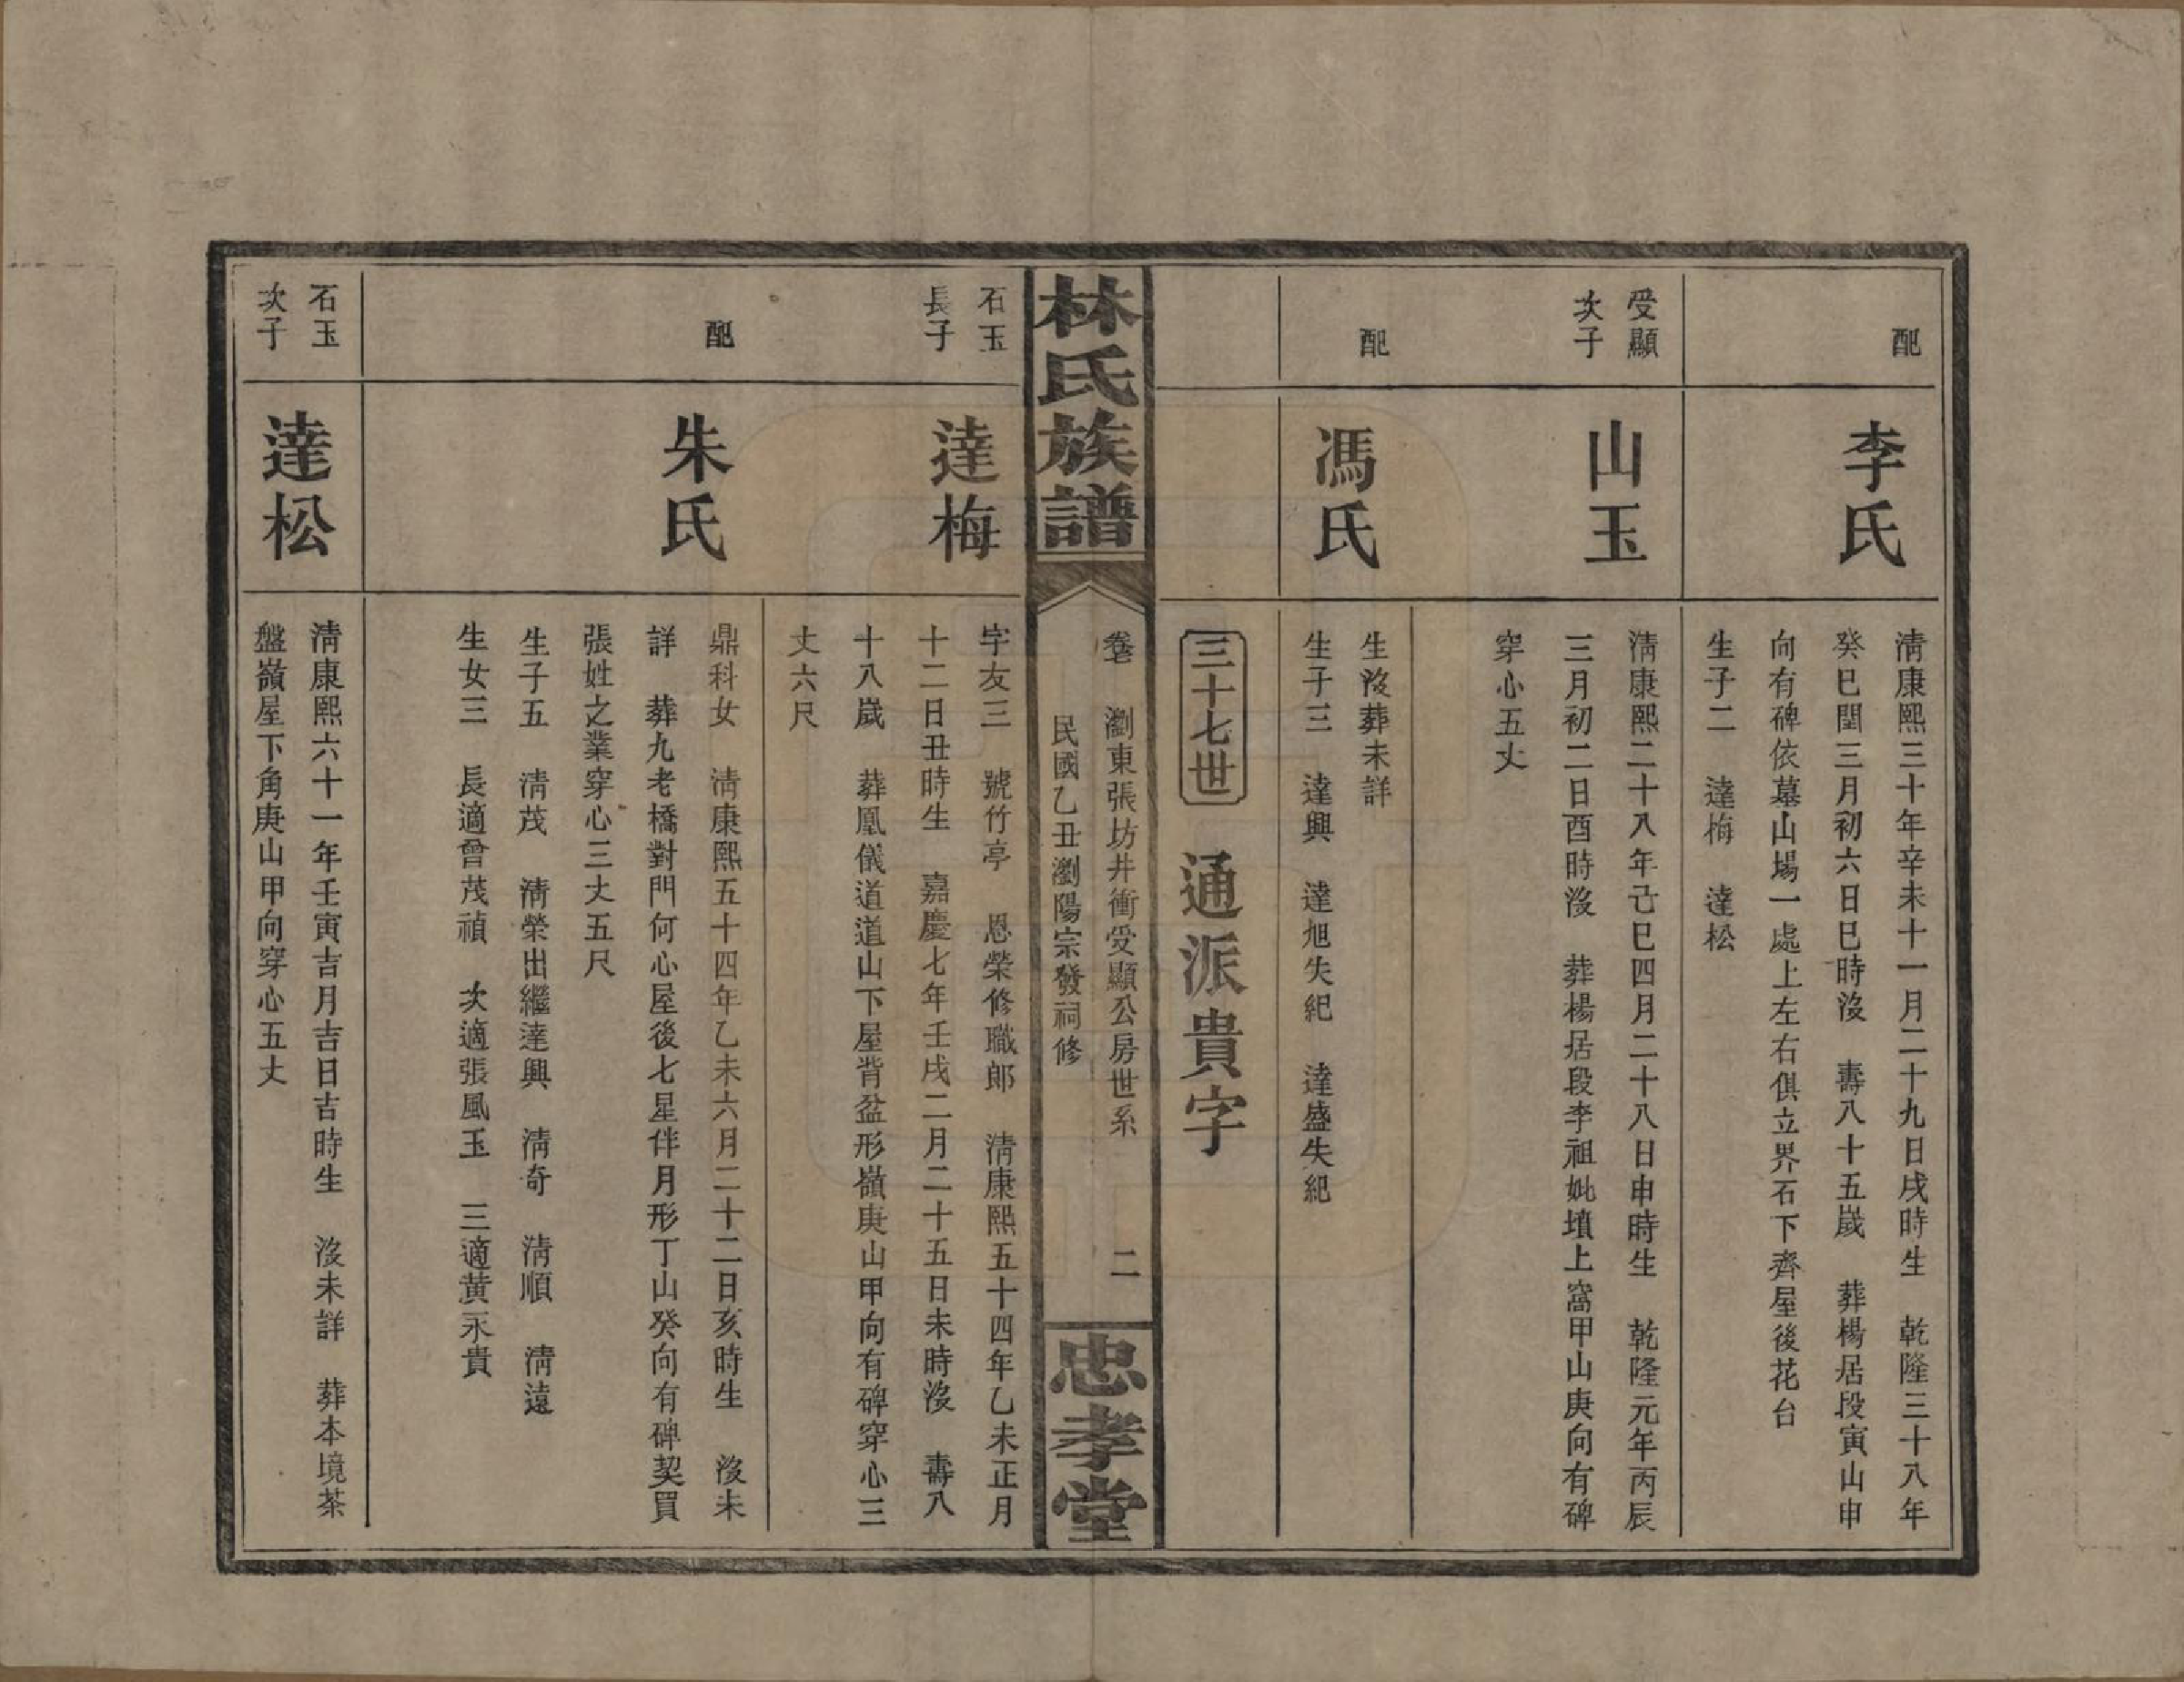 配
李氏
淸康熙三十年辛未十一月二十九日戌時生　乾隆三十八年
癸巳閏三月初六日巳時沒　壽八十五歲　葬楊居段寅山申
向有碑依墓山場一處上左右俱立界石下齊屋後花台
生子二　達梅　達松
受顯
次子
山玉
淸康熙二十八年己巳四月二十八日申時生　乾隆元年丙辰
三月初二日酉時沒　葬楊居段李祖妣墳上窩甲山庚向有碑
穿心五丈
配
馮氏
生沒葬未詳
生子三　達興　達旭失紀　達盛失紀
三十七世　通派貴字
林氏族譜
卷　瀏東張坊井衝受顯公房世系　二
民國乙丑瀏陽宗發祠修
忠孝堂
石玉
長子
達梅
字友三　號竹亭　恩榮修職郞　淸康熙五十四年乙未正月
十二日丑時生　嘉慶七年壬戌二月二十五日未時沒　壽八
十八歲　葬凰儀道道山下屋背盆形嶺庚山甲向有碑穿心三
丈六尺
配
朱氏
鼎科女　淸康熙五十四年乙未六月二十二日亥時生　沒未
詳　葬九老橋對門何心屋後七星伴月形丁山癸向有碑契買
張姓之業穿心三丈五尺
生子五　淸茂　淸榮出繼達興　淸奇　淸順　淸遠
生女三　長適曾茂禎　次適張風玉　三適黃永貴
石玉
次子
達松
淸康熙六十一年壬寅吉月吉日吉時生　沒未詳　葬本境茶
盤嶺屋下角庚山甲向穿心五丈